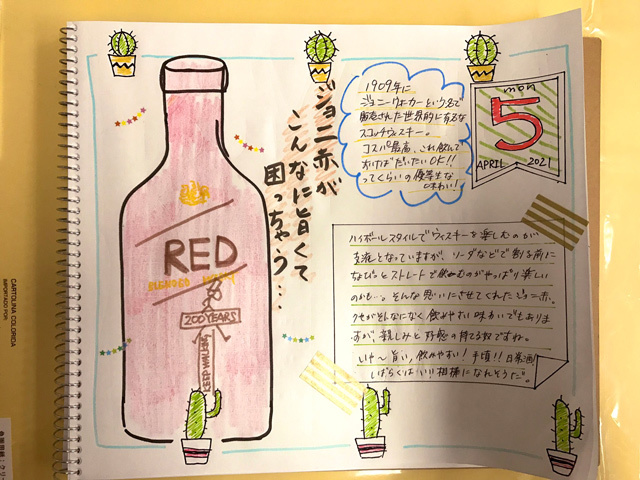 ジョニ赤が
こんなに旨くて
困っちゃう…
1909年に
ジョニーウォーカーという名で
販売された世界的に有名な
スコッチウィスキー。
コスパ最高、これ飲んで
おけばだいたいOK!!
ってくらいの優等生な
味わい!
mon
5
APRIL 2021
RED
BLENDED
200YEARS
KEEP WALKING
ハイボールスタイルでウィスキーを楽しむのが
主流となっていますが、ソーダなどで割る前に
ちびっとストレートで飲むのがやっぱり楽しい
のかも…。そんな思いにさせてくれたジョニ赤。
クセがそんなになく飲みやすい味わいでもありま
すが、親しみと好感の持てる奴ですね。
いや〜旨い、飲みやすい!手頃!!日常酒
しばらくはいい相棒になれそうだ。
CARTOLINA COLORIDA
IMPORTADO POR